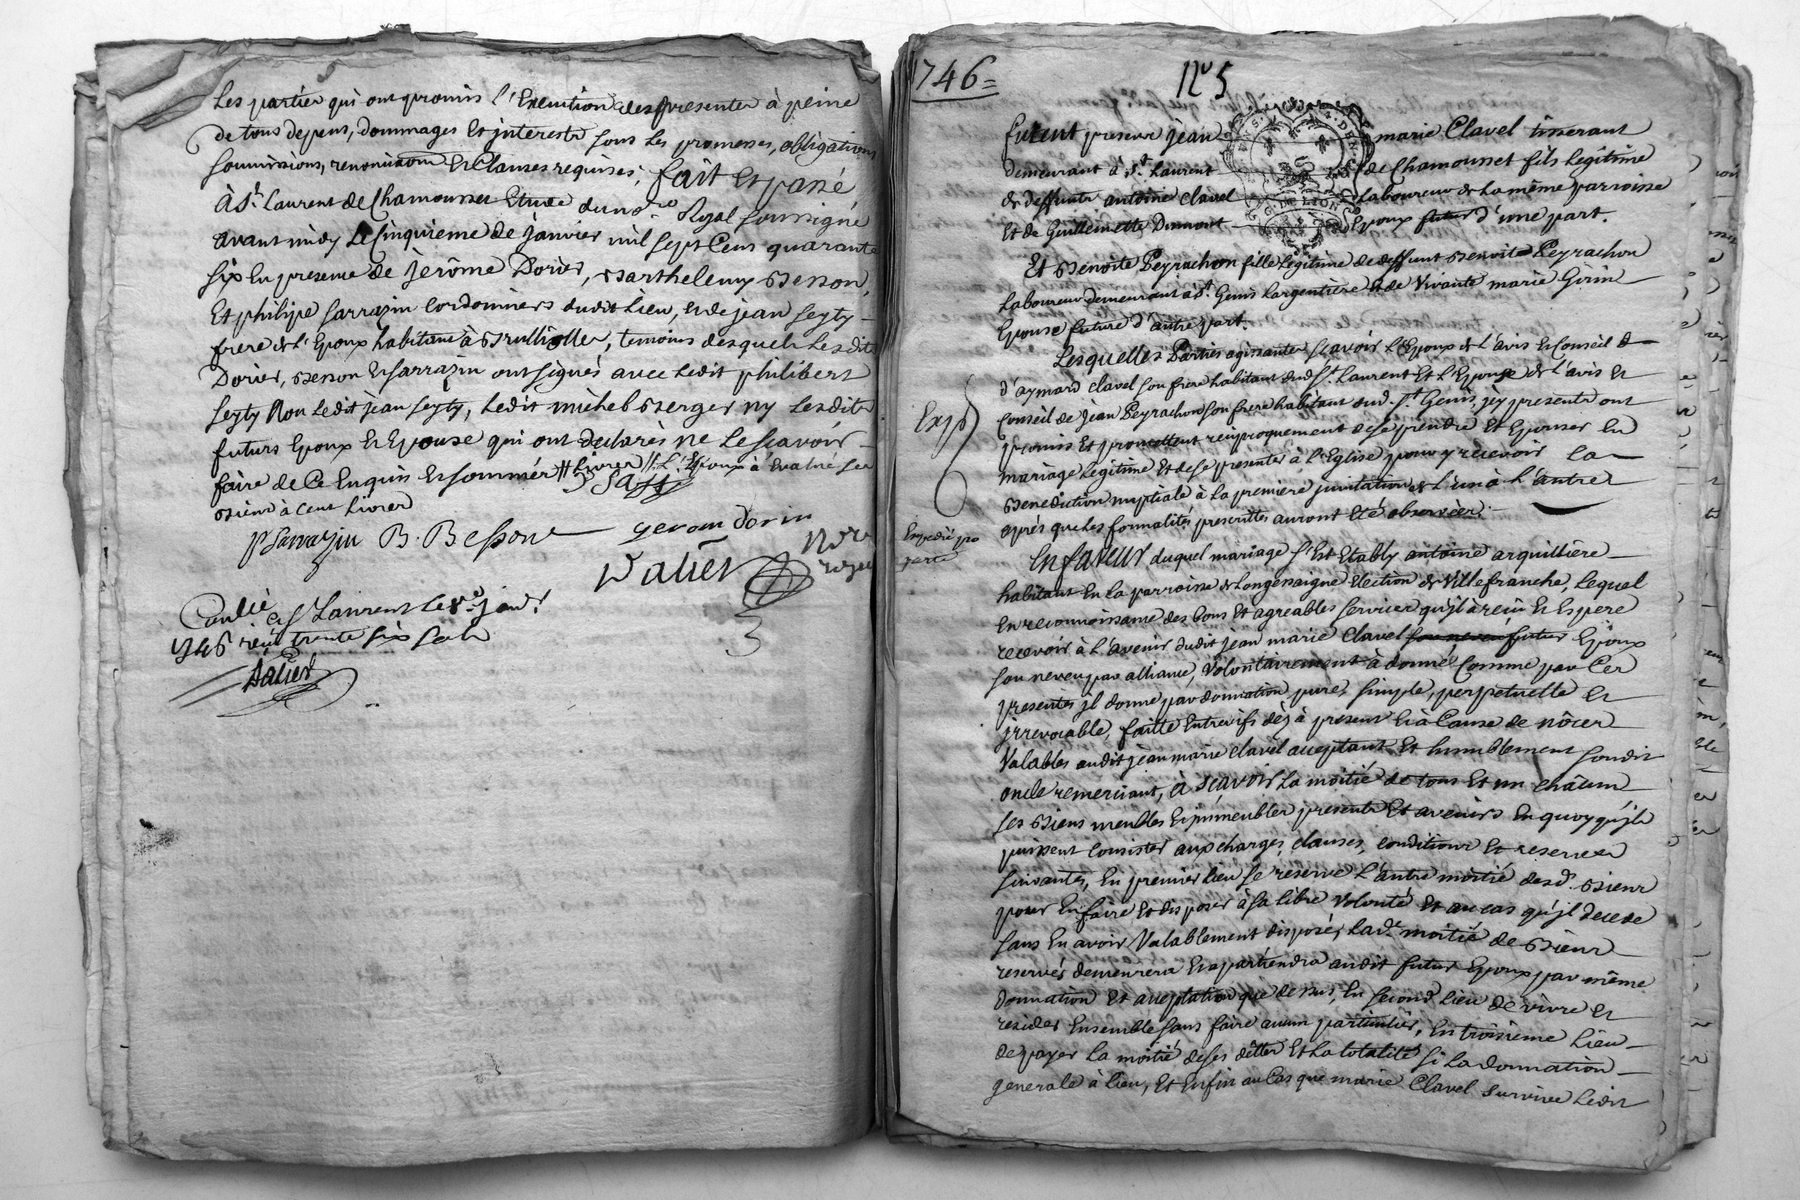 Les parties qui ont promis l'Execution des presentes à peine
de tous depens, dommages Et interests sous Les promesses, obligations
soumissions, renonciations Et Clauses requises, fait Et passé
à St. Laurent de Chamousset Etude du no.re Royal soussigné
avant midy Le Cinquieme de janvier mil sept Cens quarante
six En presence de jerôme Dorier, Barthelemy Besson,
Et philipe sarrazin Cordonniers dudit Lieu, et de jean seyty
frere de l'Epoux habitans à Brulliolles, temoins desquels Lesdits
Dorier, Besson Et sarrazin ont signés avec Ledit philibert
seyty Non Ledit jean seyty, Ledit michel Berger ny Lesdits
futurs Epoux Et Epouse qui ont declarés ne Le sçavoir
faire de Ce Enquis Et sommés // Livres // L'Epoux à Evalué ses
Biens à Cent Livres
P Sarrazin B. Besson gerom dorier
Dalier
Conllé à St Laurent Le 8e janv.
1746 reçu trente six sols
Dalier
1746 =
No 5
GEN. DE LION
furent presens jean marie Clavel tisserant
demeurant à St. Laurent de Chamousset fils Legitime
de deffunt antoine Clavel Laboureur de La même parroisse
Et de Guillemette Dumont Epoux futur d'une part.
Et Benoite Peyrachon fille Legitime de deffunt Benoit Peyrachon
Laboureur demeurant à St. Genis Largentiere Et de Vivante marie Girin
Epouse future d'autre part.
Lesquelles Parties agissantes sçavoir L'Epoux de L'avis Et Conseil
d'aymard Clavel son frere habitant dud. St. Laurent Et L'Epouse de L'avis Et
Conseil de jean Peyrachon son frere habitant aud. St. Genis, jcy presents ont
promis Et promettent reciproquement de se prendre Et Epouser En
mariage Legitime Et de se presenter à l'Eglise pour y recevoir La
Benediction nuptiale à La premiere jnvitation de L'un à L'autre
après que Les formalités prescrittes auront Eté observées.
Exp
Expedié pr
partie
En faveur duquel mariage s'Est Etably antoine arquilliere
habitant En La parroisse de Longessaigne Election de Villefranche, Lequel
En reconnoissance des bons Et agreables services qu'jl à reçu Et Espere
recevoir à L'avenir dudit jean marie Clavel son neveu futur Epoux
son neveu par alliance, Volontairement à donné Comme par Ces
presentes jl donne par donnation pure, simple, perpetuelle Et
jrrevocable, faitte Entrevifs dèjà à present Et à Cause de nôces
Valables audit jean marie Clavel acceptant Et humblement sondit
oncle remerciant, à sçavoir La moitié de tous Et un châcun
ses Biens meubles Et jmmeubles presents Et avenirs En quoy qu'jls
puissent Consister aux charges, clauses, conditions Et reserves
suivantes, En premier lieu se reserve L'autre moitié desd. Biens
pour En faire Et disposer à sa libre Volonté Et au cas qu'jl decede
sans En avoir Valablement disposés, Lade. moitié de Biens
reservés demeurera Et apartiendra audit futur Epoux par même
donnation Et acceptation que dessus, En second Lieu de vivre Et
resider Ensemble sans faire aucun particulier, En troisieme Lieu
de payer La moitié de ses dettes Et La totalité si La donnation
generale à lieu, Et Enfin au Cas que marie Clavel survive Ledit